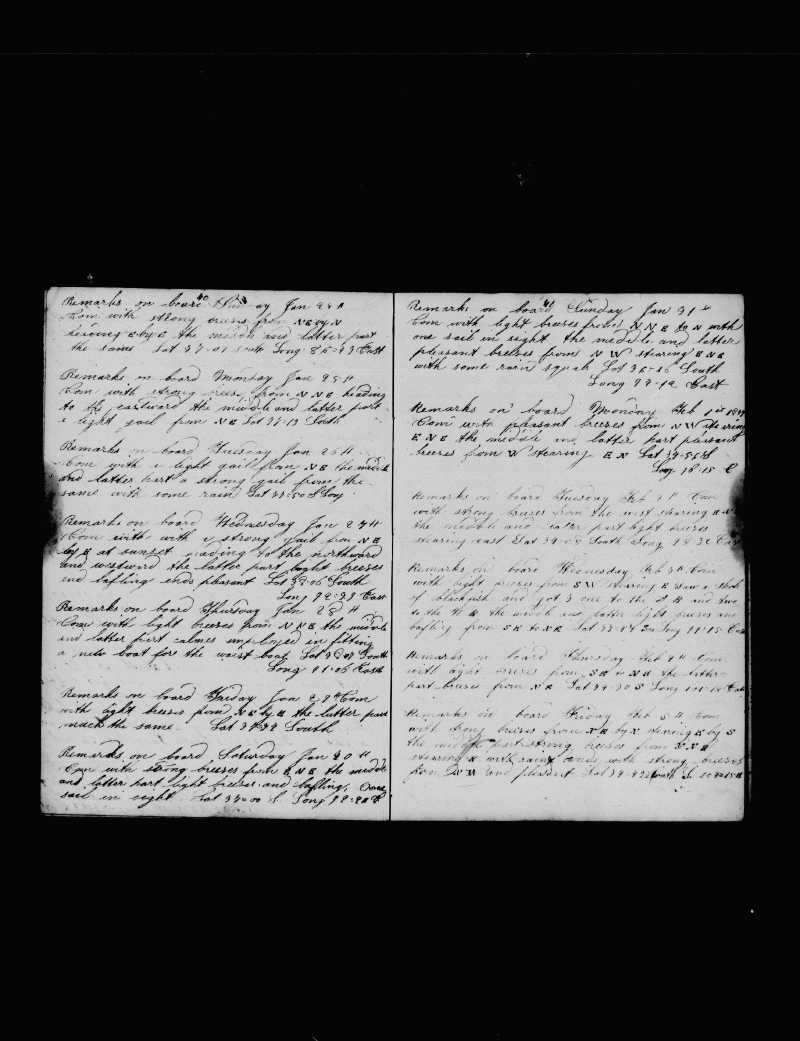 40
Remarks on board Sunday Jan 24 th
Com with strong breeses from N E by N
heading E by S the middle and latter part
the same Lat 37-01 south Long 86-43 East
Remarks on board Monday Jan 25 th
Com with strong breeses from N N E heading
to the eastward the middle and latter part
a light gail from N E Lat South
Remarks on board Tuesday Jan 26 th
Com with a light gail from N E the middle
and latter part a strong gail from the
same with some rain Lat 38-50 S Long
Remarks on board Wednesday Jan 27 th
Com with with a strong gail from N E
by E at sunset to the northward
and westward the latter part light breeses
and bafling ends pleasant Lat 39-06 South
Long East
Remarks on board Thursday Jan 28 th
Com with light breeses from N N E the middle
and latter part calmes imploied in fitting
a new boat for the waist boat Lat South
Long 91-06 East
Remarks on board Friday Jan 29 th Com
with light breeses from N E by E the latter part
much the same Lat South
Remarks on board Saturday Jan 30 th
Com with strong breeses from E N E the middle
and latter part light breeses and bafling, one
sail in sight Lat S Long
41
Remarks on board Sunday Jan 31 th
Com with light breeses from N N E to N with
one sail in sight the middle and latter
pleasant breeses from N W stearing E N E
with some rain squals Lat 36-16 South
Long East
Remarks on board Monday Feb 1 st
Com with pleasant breeses from N W stearing
E N E the middle and latter part pleasant
breeses from W stearing E N Lat S
Long 98-15 E
Remarks on board Tuesday Feb 2 th Com
with strong breeses from the west stearing
the middle and latter part light breeses
stearing east Lat 34-08 South Long 98-32 East
Remarks on board Wednesday Feb 3 th Com
with light breeses from S W stearing E saw a shole
of blackfish and got 3 one to the S B and two
to the W B the middle and latter light breeses and
bafling from S E to N E Lat Long East
Remarks on board Thursday Feb 4 th Com
with light breeses from S E to N E the latter
part breeses from N E Lat 34-30 S Long 101-18 East
Remarks on board Friday Feb 5 th Com
with strong breeses from N E by N stearing E by S
the middle part strong breeses from N N E
stearing E with rain ends with strong breeses
from W and pleasant Lat South